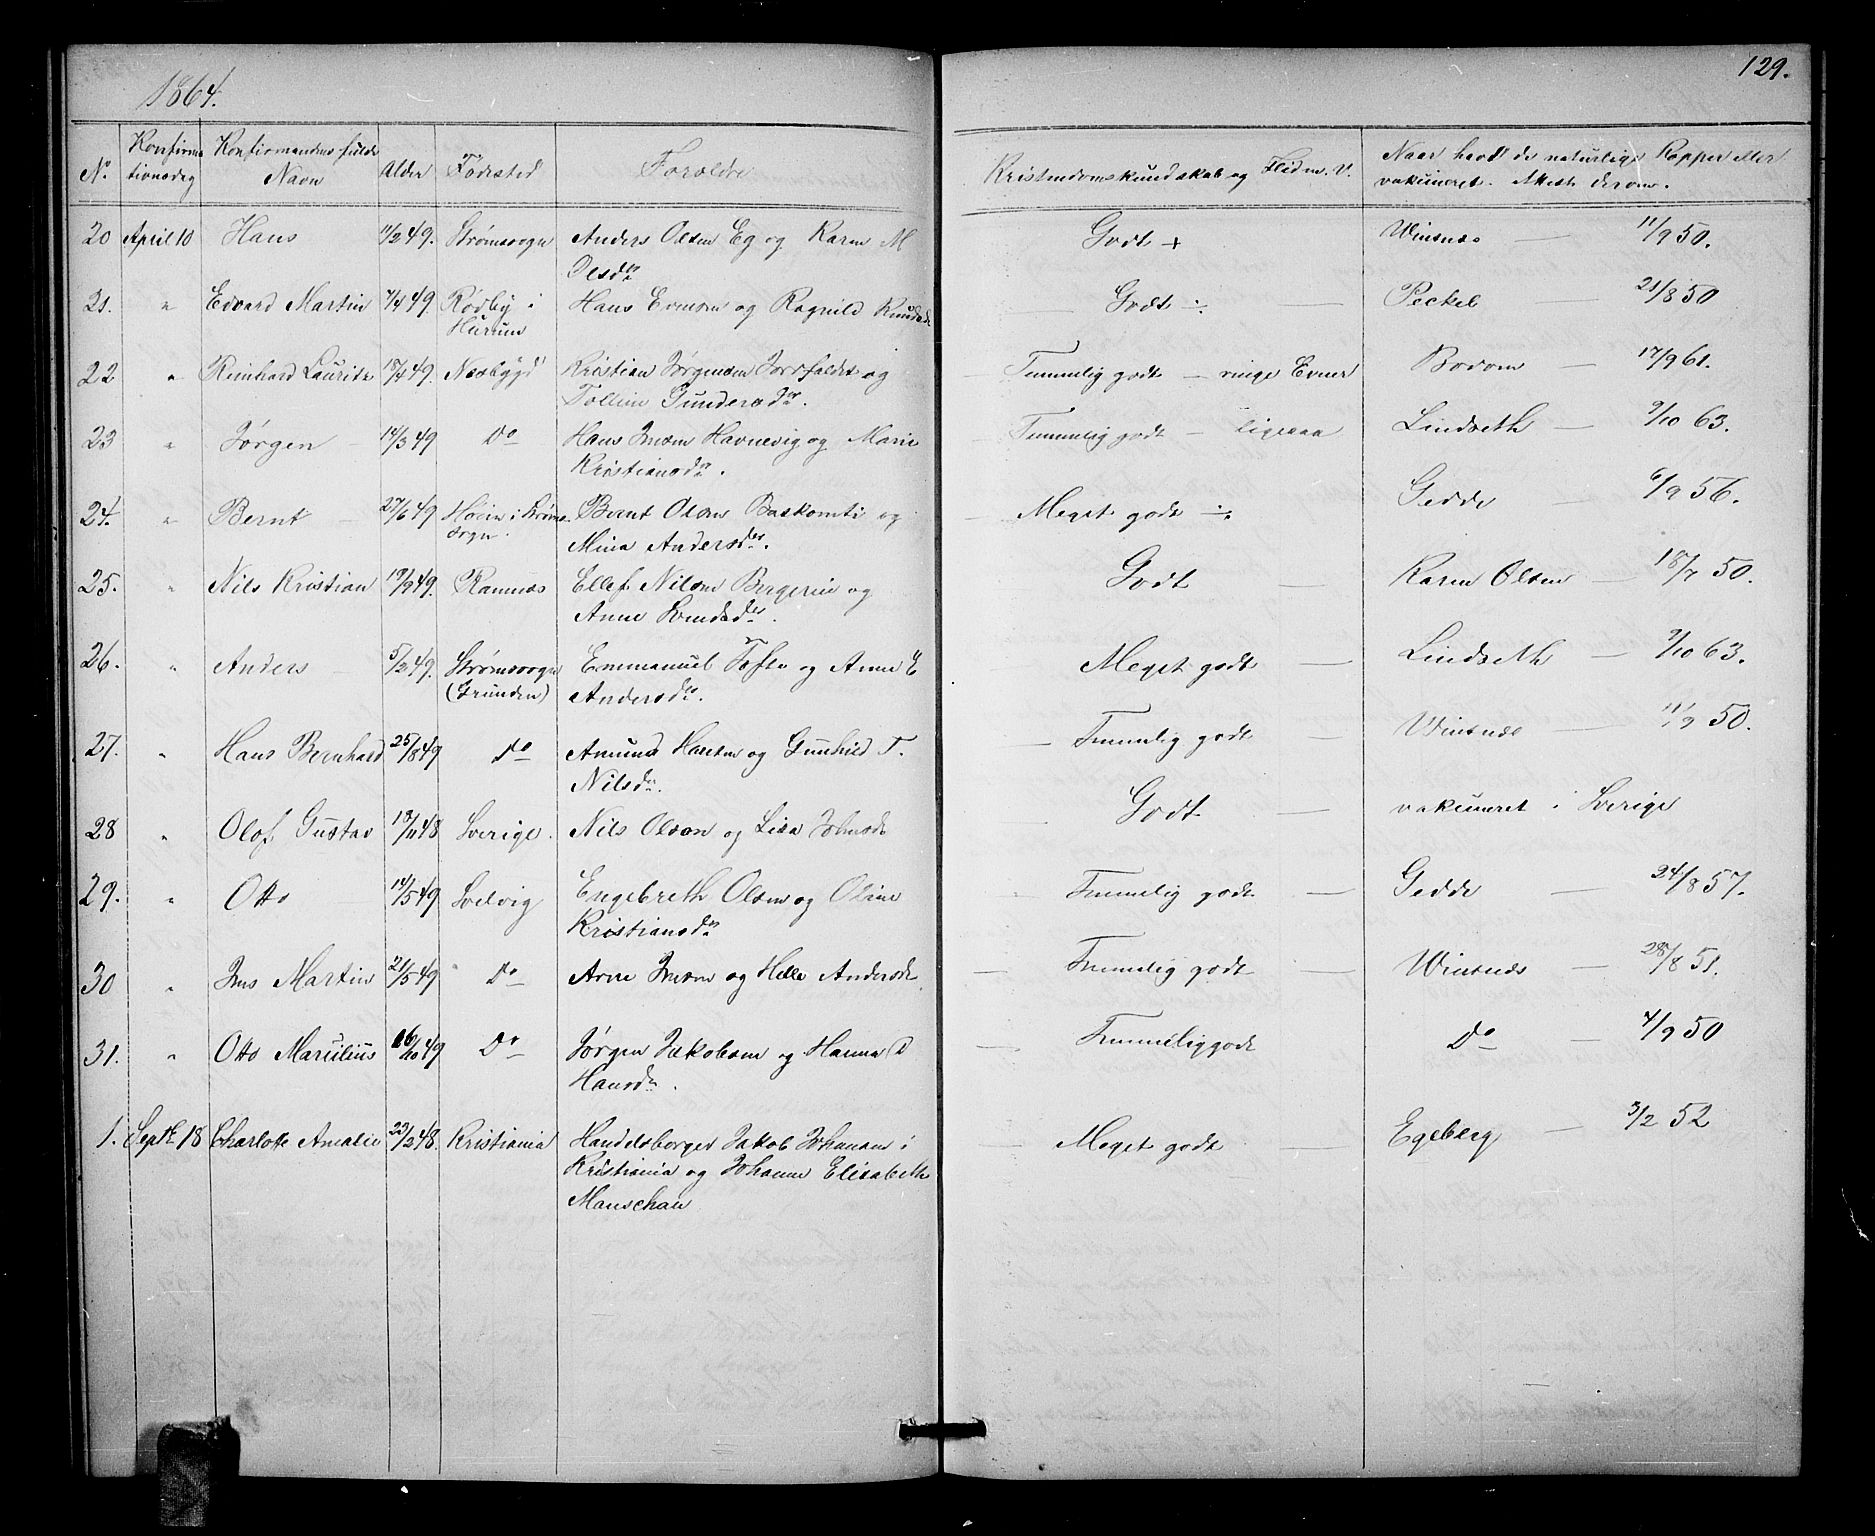 1864.
129.
No Konfirmationsdag Konfirmandens fulde Navn Alder Fødested Forældre Kristendomskundskab og Flid m. V. Naar havdt de naturlige Kopper eller vakcineret. Attest derom.
20 April 10 Hans 11/2 49. Strømssogn Anders Olsen Eg og Karen M Godt + Winsnes — 11/9 50.
Olsdr
21. " Edvard Martin 7/4 49 Rødby i Hurum Hans Evensen og Ragnild Knudsdr Godt ÷ — Peckel 21/8 50
22 " Reinhard Lauritz 18/4 49. Nesbygd Kristian Jørgensen Torsfaldet og Temmelig godt — ringe Evner Bodom — 17/9 61.
Tolline Gundersdr.
23 " Jørgen 14/3 49 Do Hans Jensen Havnevig og Marie Temmelig godt — ligesaa Lindseth — 9/10 63.
Kristiansdr.
24. " Bernt 27/6 49 Høien i Strøms Sogn. Bernt Olsen Baskomti og Meget godt ÷ Gedde — 6/9 56.
Mina Andersdr.
25. " Nils Kristian 19/9 49. Ramnæs Ellef Nilsen Bergerin og Godt — Karen Olsen — 18/7 50.
Anne Knudsdr.
26. " Anders 5/2 49. Strømssogn (Grunden) Emmanuel Tofte og Anne E Meget godt — Lindseth — 9/10 63.
Andersdr.
27. " Hans Bernhard 25/8 49 Do Amund Hansen og Gunhild T. — Temmelig godt — Winsnes — 11/9 50.
Nilsdr.
28 " Olof Gustav 18/11 48 Sverige. Nils Olsson og Lisa Johnsdr Godt — vakcineret i Sverige
29. " Otto 14/5 49 Svelvig Engebreth Olsen og Oline Temmelig godt — Gedde — 24/8 57.
Kristiansdr
30 " Jens Martin 21/5 49 Do Arne Jensen og Helle Andersdr — Temmelig godt — Winsnes — 28/8 51.
31. " Otto Marcilius 16/10 49 Do Jørgen Jakobsen og Hanna D — Temmelig godt Do — 4/9 50
Hansdr.
1. Septbr 18 Charlotte Amalie 23/2 48. Kristiania Handelsborger Jakob Johansen i — Meget godt — Egeberg — 3/2 52
Kristiania og Johanne Elisabeth
Manschau